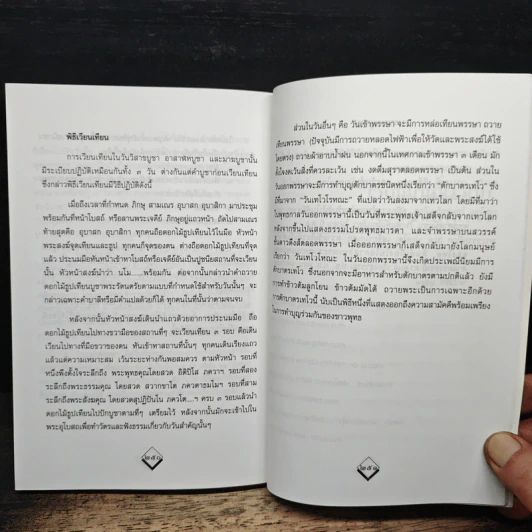 พิธีเวียนเทียน
การเวียนเทียนในวันวิสาขบูชา อาสาฬหบูชา และมาฆบูชานั้น
มีระเบียบปฏิบัติเหมือนกันทั้ง ๓ วัน ต่างกันแต่คำบูชาก่อนเวียนเทียน
ซึ่งกล่าวพิธีเวียนเทียนมีวิธีปฏิบัติดังนี้
เมื่อถึงเวลาที่กำหนด ภิกษุ สามเณร อุบาสก อุบาสิกา มาประชุม
พร้อมกันที่หน้าโบสถ์ หรือลานพระเจดีย์ ภิกษุอยู่แถวหน้า ถัดไปสามเณร
ท้ายสุดคือ อุบาสก อุบาสิกา ทุกคนถือดอกไม้ธูปเทียนไว้ในมือ หัวหน้า
พระสงฆ์จุดเทียนและธูป ทุกคนก็จุดของตน ต่างถือดอกไม้ธูปเทียนที่จุด
แล้ว ประนมมือหันหน้าเข้าหาโบสถ์หรือเจดีย์อันเป็นปูชนียสถานที่จะเวียน
นั้น หัวหน้าสงฆ์นำว่า นโม.....พร้อมกัน ต่อจากนั้นกล่าวนำคำถวาย
ดอกไม้ธูปเทียนบูชาพระรัตนตรัยตามแบบที่กำหนดใช้สำหรับวันนั้นๆ จะ
กล่าวเฉพาะคำบาลีหรือมีคำแปลด้วยก็ได้ ทุกคนในที่นั้นว่าตามจนจบ
หลังจากนั้นหัวหน้าสงฆ์เดินนำแถวด้วยอาการประนมมือ ถือ
ดอกไม้ธูปเทียนไปทางขวามือของสถานที่ๆ จะเวียนเทียน ๓ รอบ คือเดิน
เวียนไปทางที่มือขวาของตน หันเข้าหาสถานที่นั้นๆ ทุกคนเดินเรียงแถว
แล้วแต่ความเหมาะสม เว้นระยะห่างกันพอสมควร ตามหัวหน้า รอบที่
หนึ่งพึงตั้งใจระลึกถึง พระพุทธคุณโดยสวด อิติปิโส ภควาฯ รอบที่สอง
ระลึกถึงพระธรรมคุณ โดยสวด สวากขาโต ภควตาธมโมฯ รอบที่สาม
ระลึกถึงพระสังฆคุณ โดยสวดสุปฏิปันโน ภควโต...ฯ ครบ ๓ รอบแล้วนำ
ดอกไม้ธูปเทียนไปปักบูชาตามที่ๆ เตรียมไว้ หลังจากนั้นมักจะเข้าไปใน
พระอุโบสถเพื่อทำวัตรและฟังธรรมเกี่ยวกับวันสำคัญนั้นๆ
ส่วนในวันอื่นๆ คือ วันเข้าพรรษา จะมีการหล่อเทียนพรรษา ถวาย
เทียนพรรษา (ปัจจุบันมีการถวายหลอดไฟฟ้าเพื่อให้วัดและพระสงฆ์ได้ใช้
โดยตรง) ถวายผ้าอาบน้ำฝน นอกจากนี้ในเทศกาลเข้าพรรษา ๓ เดือน มัก
ตั้งใจงดเว้นสิ่งที่ควรละเว้น เช่น งดดื่มสุราตลอดพรรษา เป็นต้น ส่วนใน
วันออกพรรษาจะมีการทำบุญตักบาตรชนิดหนึ่งเรียกว่า "ตักบาตรเทโว" ซึ่ง
ที่มาจาก "วันเทโวโรหณะ" ที่แปลว่าวันลงมาจากเทวโลก โดยมีที่มาว่า
ในพุทธกาลวันออกพรรษานี้เป็นวันที่พระพุทธเจ้าเสด็จกลับจากเทวโลก
หลังจากขึ้นไปแสดงธรรมโปรดพุทธมารดา และจำพรรษาบนสวรรค์
ชั้นดาวดึงส์ตลอดพรรษา เมื่อออกพรรษาก็เสด็จกลับมายังโลกมนุษย์
เรียกว่า วันเทโวโรหณะ ในวันออกพรรษานี้จึงเกิดประเพณีนิยมมีการ
ตักบาตรเทโว ซึ่งนอกจากจะมีอาหารสำหรับตักบาตรตามปกติแล้ว ยังมี
การทำข้าวต้มลูกโยน ข้าวต้มมัดใต้ ถวายพระเป็นการเฉพาะอีกด้วย
การตักบาตรเทโวนี้ นับเป็นพิธีหนึ่งที่แสดงออกถึงความสามัคคีพร้อมเพรียง
ในการทำบุญร่วมกันของชาวพุทธ